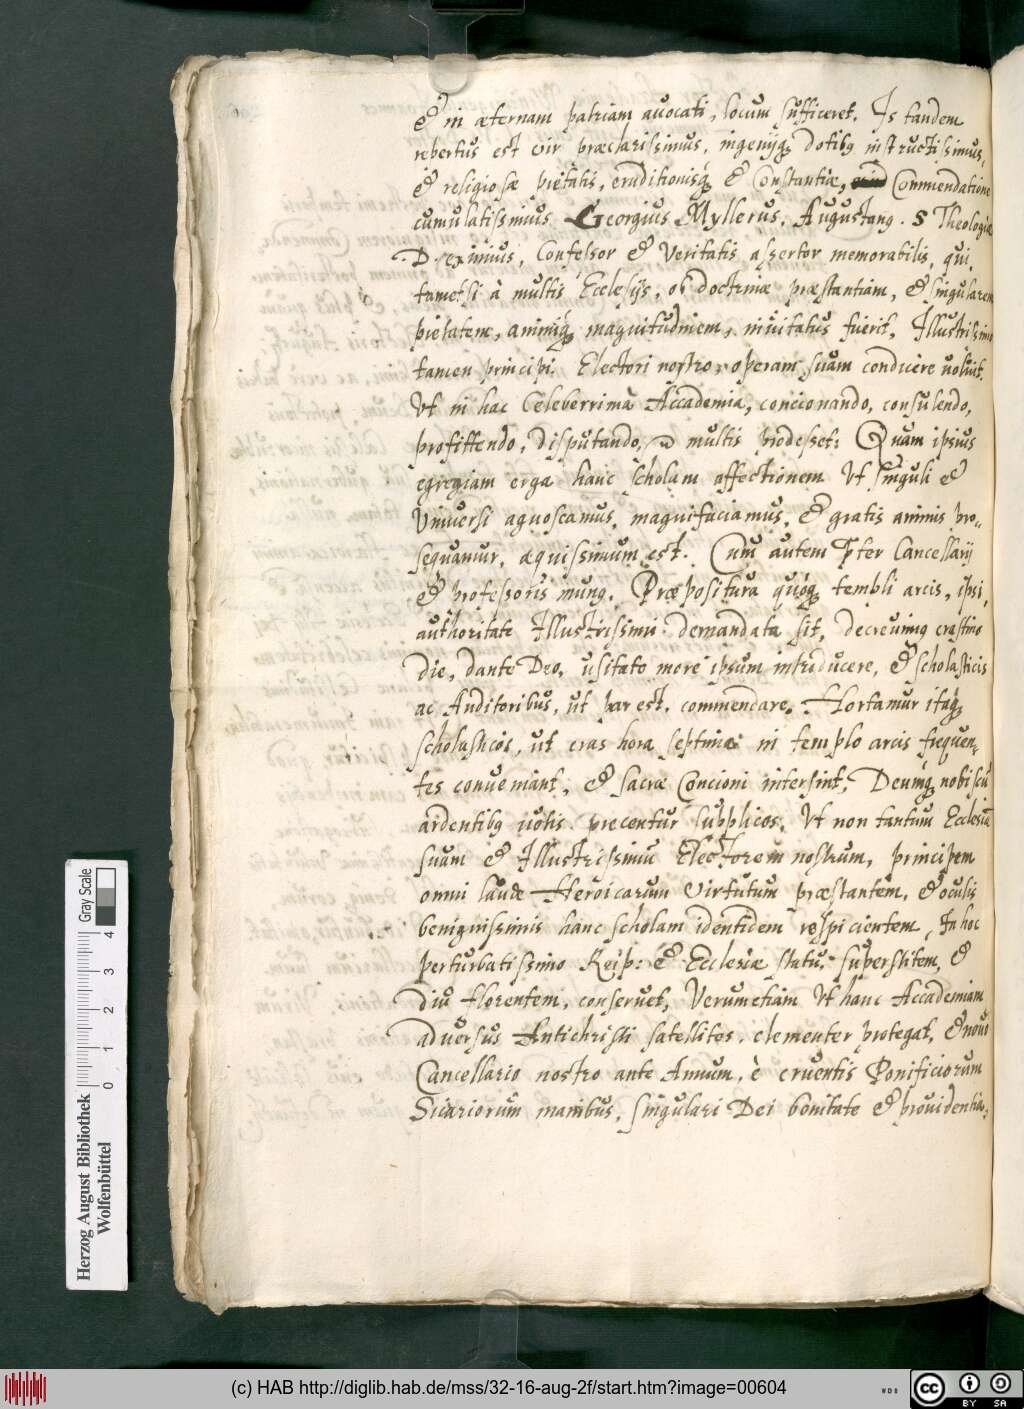 & in æternam patriam auocati, locum sufficeret. Is tandem
repertus est vir præclarissimus, ingenijq; dotibus instructissimus,
& religiosæ pietatis, eruditionisq́; & Constantiæ, Commendatione
cumulatissimus Georgius Myllerus, Augustanus. S Theologiæ
D. eximius, Confessor & Veritatis assertor memorabilis, qui,
tametsi à multis Ecclesijs, ob doctrinæ præstantiam, & singularem
pietatem, animiq́; magnitudinem, inuitatus fuerit, Illustrissimo
tamen principi Electori nostro, operam suam condicere uoluit.
Vt in hac Celeberrima Accademia, concionando, consulendo,
profitendo, disputando, multis prodesset: Quam ipsius
egregiam erga hanc scholam affectionem Vt singuli &
Vniuersi agnoscamus, magnifaciamus, & gratis animis pro-
sequamur, æquissimum est. Cum autem Cancellarij
& professoris munus, Præpositura quoq; templi arcis, ipsi,
authoritate Illustrissimi demandata sit, decreuimus crastino
die, dante Deo, usitato more ipsum introducere, & scholasticis
ac Auditoribus, ut par est, commendare. Hortamur itaq;
scholasticos, ut cras hora septima in templo arcis frequen-
tes conueniant, & sacræ Concioni intersint, Deumq́; nobiscū
ardentibus uotis precentur supplices, Vt non tantum Ecclesiā
suam & Illustrissimū Electorem nostrum, principem
omni laude Heroicarum Virtutum præstantem, & oculis
benignissimis hanc scholam identidem respicientem, In hoc
perturbatissimo Reip: & Ecclesiæ statu, superstitem, &
Diu florentem, conseruet, Verumetiam Vt hanc Accademiam
aduersus Antichristi satellites, clementer protegat, & nouo
Cancellario nostro ante Annum, è cruentis Ponificiorum
Sicariorum manibus, singulari Dei bonitate & prouidentia,
Herzog August Bibliothek
Wolfenbüttel
0 1 2 3 4
Gray Scale
(c) HAB http://diglib.hab.de/mss/32-16-aug-2f/start.htm?image=00604
WDB
cc
BY SA